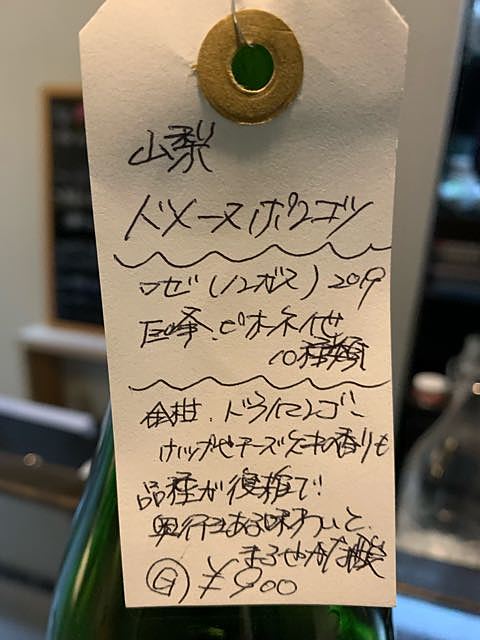 山梨
ドメーヌポワゴツ
ロゼ(ノンガス) 2019
巨峰、ピオーネ他
10種類
金柑、ドライマンゴー
ナッツやチーズケーキの香りも
品種が複雑で!
奥行きある味わいで、
まろやかな酸
G) ¥900